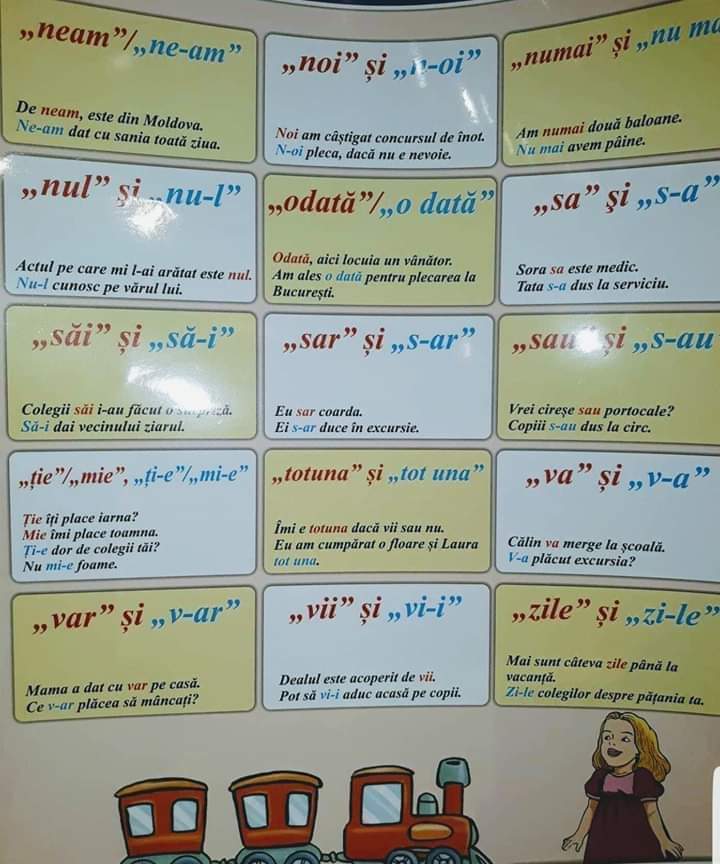 „neam”/„ne-am”
De neam, este din Moldova.
Ne-am dat cu sania toată ziua.
„noi” și „n-oi”
Noi am câștigat concursul de înot.
N-oi pleca, dacă nu e nevoie.
„numai” și „nu ma
Am numai două baloane.
Nu mai avem pâine.
„nul” și „nu-l”
Actul pe care mi l-ai arătat este nul.
Nu-l cunosc pe vărul lui.
„odată”/„o dată”
Odată, aici locuia un vânător.
Am ales o dată pentru plecarea la
București.
„sa” și „s-a”
Sora sa este medic.
Tata s-a dus la serviciu.
„săi” și „să-i”
Colegii săi i-au făcut o surpriză.
Să-i dai vecinului ziarul.
„sar” și „s-ar”
Eu sar coarda.
Ei s-ar duce în excursie.
„sau” și „s-au
Vrei cireșe sau portocale?
Copiii s-au dus la circ.
„ție”/„mie”, „ți-e”/„mi-e”
Ție îți place iarna?
Mie îmi place toamna.
Ți-e dor de colegii tăi?
Nu mi-e foame.
„totuna” și „tot una”
Îmi e totuna dacă vii sau nu.
Eu am cumpărat o floare și Laura
tot una.
„va” și „v-a”
Călin va merge la școală.
V-a plăcut excursia?
„var” și „v-ar”
Mama a dat cu var pe casă.
Ce v-ar plăcea să mâncați?
„vii” și „vi-i”
Dealul este acoperit de vii.
Pot să vi-i aduc acasă pe copii.
„zile” și „zi-le”
Mai sunt câteva zile până la
vacanță.
Zi-le colegilor despre pățania ta.